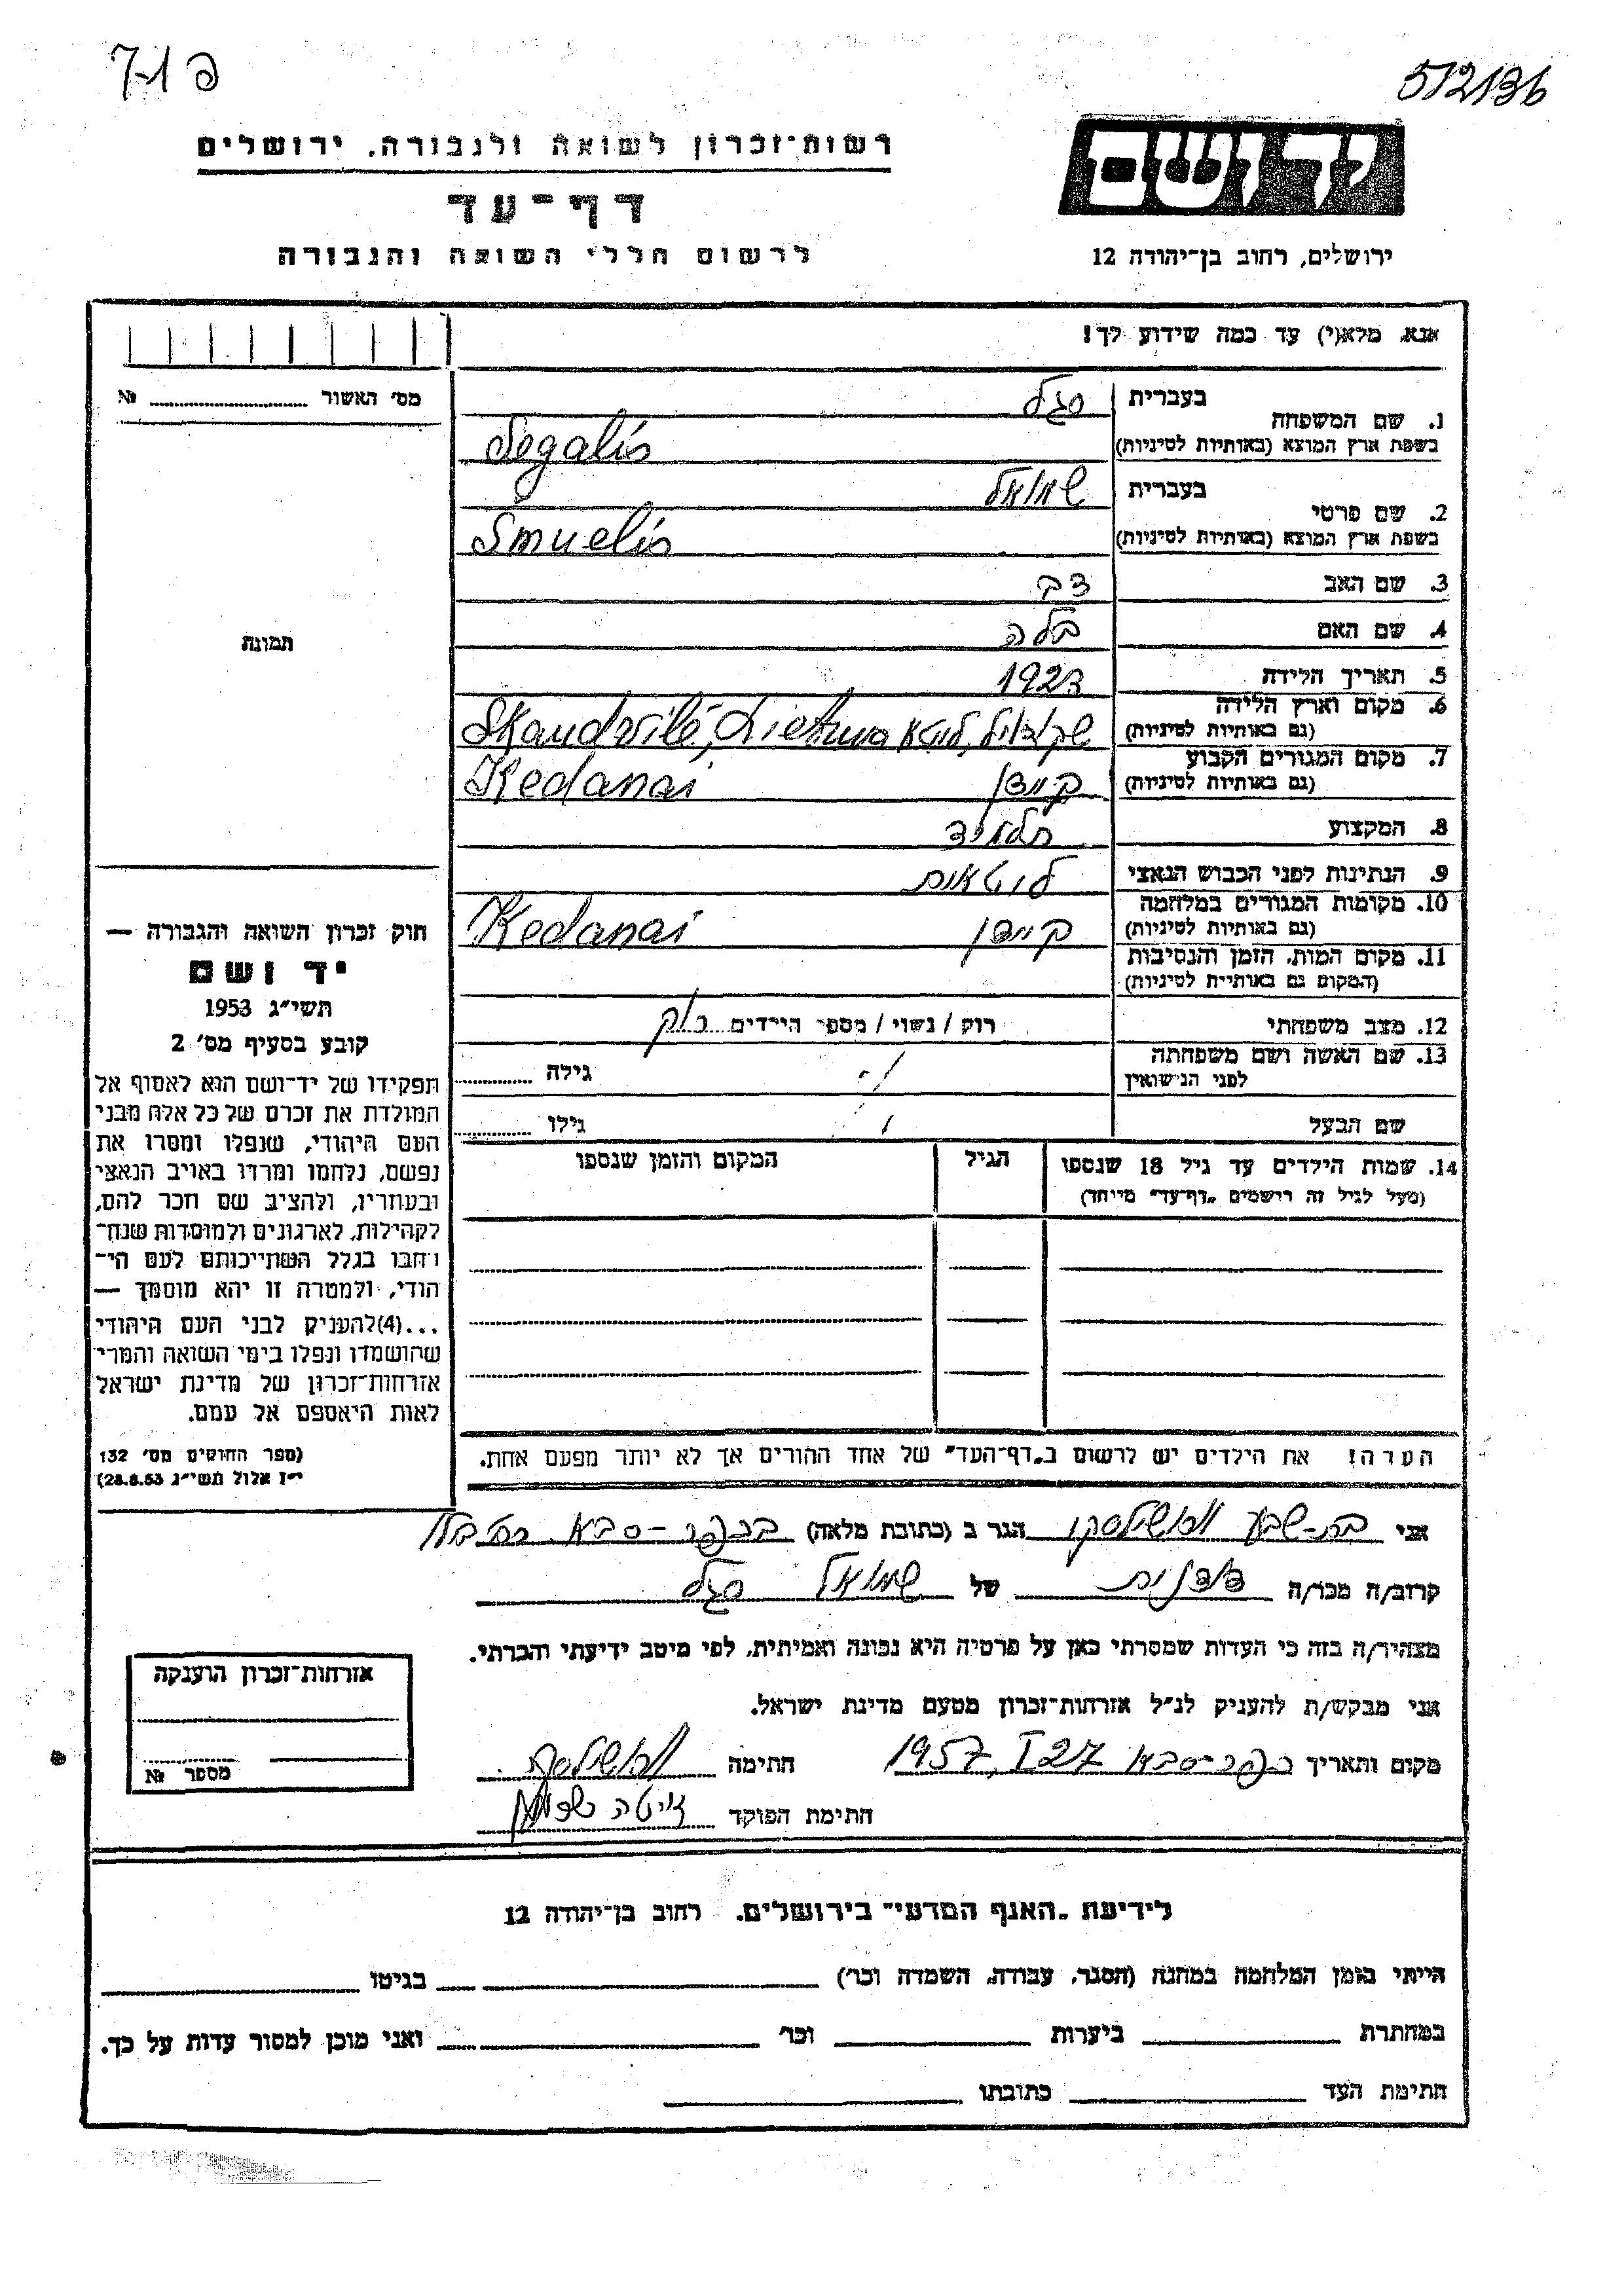 פ 7-1
572136
יד ושם
רשות־זכרון לשואה ולגבורה, ירושלים
דף־עד
לרשום חללי השואה והגבורה
ירושלים, רחוב בן־יהודה 12
אנא, מלא(י) עד כמה שידוע לך!
מס׳ האשור № 
תמונה
חוק זכרון השואה והגבורה —
יד ושם
תשי״ג 1953
קובע בסעיף מס׳ 2
תפקידו של יד־ושם הוא לאסוף אל
המולדת את זכרם של כל אלה מבני
העם היהודי, שנפלו ומסרו את
נפשם, נלחמו ומרדו באויב הנאצי
ובעוזריו, ולהציב שם וזכר להם,
לקהילות, לארגונים ולמוסדות שנח־
רבו בגלל השתייכותם לעם הי־
הודי, ולמטרה זו יהא מוסמך —
...(4)להעניק לבני העם היהודי
שהושמדו ונפלו בימי השואה והמרי
אזרחות־זכרון של מדינת ישראל
לאות היאספם אל עמם.
(ספר החוקים מס׳ 132
י״ז אלול תשי״ג 28.8.53)
1. שם המשפחה בעברית סגל
בשפת ארץ המוצא (באותיות לטיניות) Segalis
2. שם פרטי בעברית שמואל
בשפת ארץ המוצא (באותיות לטיניות) Smuelis
3. שם האב דב
4. שם האם בלה
5. תאריך הלידה 1923
6. מקום וארץ הלידה
(גם באותיות לטיניות) שקודויל, ליטא Skaudvilė, Lietuva
7. מקום המגורים הקבוע
(גם באותיות לטיניות) קיידן Kedanai
8. המקצוע תלמיד
9. הנתינות לפני הכבוש הנאצי ליטאית
10. מקומות המגורים במלחמה
(גם באותיות לטיניות) קיידן Kedanai
11. מקום המות, הזמן והנסיבות
(המקום גם באותיות לטיניות)
12. מצב משפחתי רוק / נשוי / מספר הילדים רוק
13. שם האשה ושם משפחתה
לפני הנישואין גילה
שם הבעל גילו
14. שמות הילדים עד גיל 18 שנספו הגיל המקום והזמן שנספו
(מעל לגיל זה רישמים „דף־עד״ מיוחד)
הערה! את הילדים יש לרשום ב„דף־העד״ של אחד ההורים אך לא יותר מפעם אחת.
אני בת-שבע הגר ב (כתובת מלאה) בכפר-סבא
קרוב/ה מכר/ה בת דודו של שמואל סגל
מצהיר/ה בזה כי העדות שמסרתי כאן על פרטיה היא נכונה ואמיתית, לפי מיטב ידיעתי והכרתי.
אני מבקש/ת להעניק לנ״ל אזרחות־זכרון מטעם מדינת ישראל.
מקום ותאריך כפר-סבא 27 I, 1957 חתימה
חתימת הפוקד
אזרחות־זכרון הוענקה
מספר №
לידיעת „האגף המדעי״ בירושלים. רחוב בן־יהודה 12
הייתי בזמן המלחמה במחנה (הסגר, עבודה, השמדה וכו׳) בגיטו
במחתרת ביערות וכו׳ ואני מוכן למסור עדות על כך.
חתימת העד כתובתו